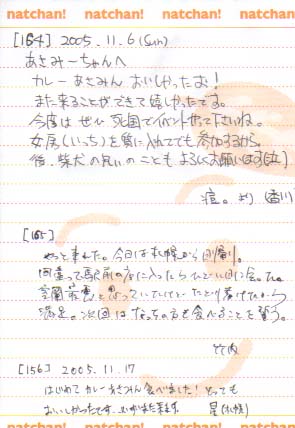 natchan! natchan! natchan! natchan!
[154] 2005.11.6(Sun)
あさみーちゃんへ
カレーあさみん おいしかったよ!
また来ることができて嬉しかったです。
今度は ぜひ 四国でイベントやって下さいね。
女房(いっち)を質に入れてでも参加するから。
後、柴犬の のことも よろしくお願いします(笑)
より (香川)
[155]
やっと来れた。今日は札幌から日帰り。
間違って駅前の店に入ったら ひどい目に会った。
室蘭最悪と思っていたけど たどり着けたから
満足。次回は なっちの方も食べることを誓う。
竹内
[156] 2005.11.17
はじめて カレーあさみん食べました! とっても
おいしかったです。 また来ます。 星(札幌)
natchan! natchan! natchan! natchan!